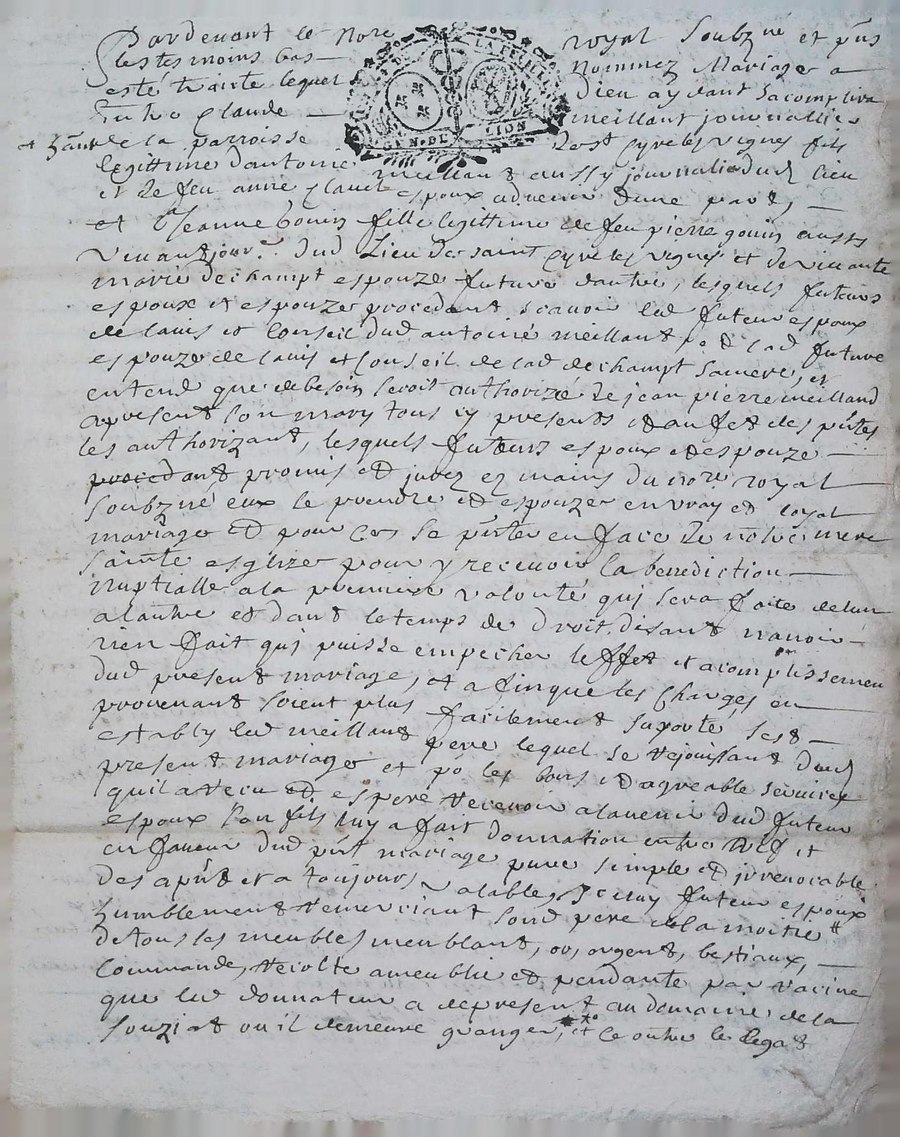 Pardevant le Nore royal Soubzné et p̃ns
les tesmoins bas nommez Mariage a
esté traitte lequel Dieu aydant sacomplira
Entre Claude meillant journallier
de la parroisse St Cyre les vignes fils
legittime dantoine meillant aussy journalie dud lieu
et de feu anne espoux advenir dune part,
et Jeanne gouin fille legittime de feu pierre gouin aussy
vivant jour. dud Lieu de saint Cyre les vignes et de vivante
marie dechampt espouze future dautre, lesquels futeurs
espoux et espouze procedant scavoir led futeur espoux
de lavis et Conseil dud antoine meillant pe & lad future
espouze de lavis et Conseil de lad dechampt sa mere, et
entend que debesoin seroit authorizé de jean pierre meilland
apresent son mary tous icy presents et au fet des p̃ntes
les authorizant, lesquels futeurs espoux et espouze
procedant promis et jurez ez mains du nore royal
soubzné eux se prendre et espouzer en vray et loyal
mariage et pour ces se p̃nter en face de nostre mere
sainte esglize pour y recevoir la benediction
nuptialle a la premiere volonté qui sera faite de lun
a lautre et dant le temps de droit. disant navoir
rien fait qui puisse empecher leffet et acomplissemen
dud present mariage, et afin que les Charges en
provenant soient plus facilement suporté sest
estably led meillant pere lequel se rejouissant dud
present mariage et po les bons et agreable services
quil a recu et espere recevoir a lavenir dud futeur
espoux son fils luy a fait donnation entre vifs et
en faveur dud p̃nt mariage pure simple et irrevocable
des ap̃nt et a toujours valable, Iceluy futeur espoux
humblement remerciant sond pere de la moitié
de tous les meubles meublant, or, argent, bestiaux,
Commande, recolte ameublie et pendante par racine
que led donnateur a depresent au domaine de la
Souziat ou il demeure granger, et Ce outre le legat
LA FEUILLE
GEN. DE LION